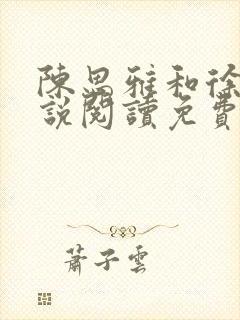 陳思雅和徐
說閱讀免費
蕭子雲